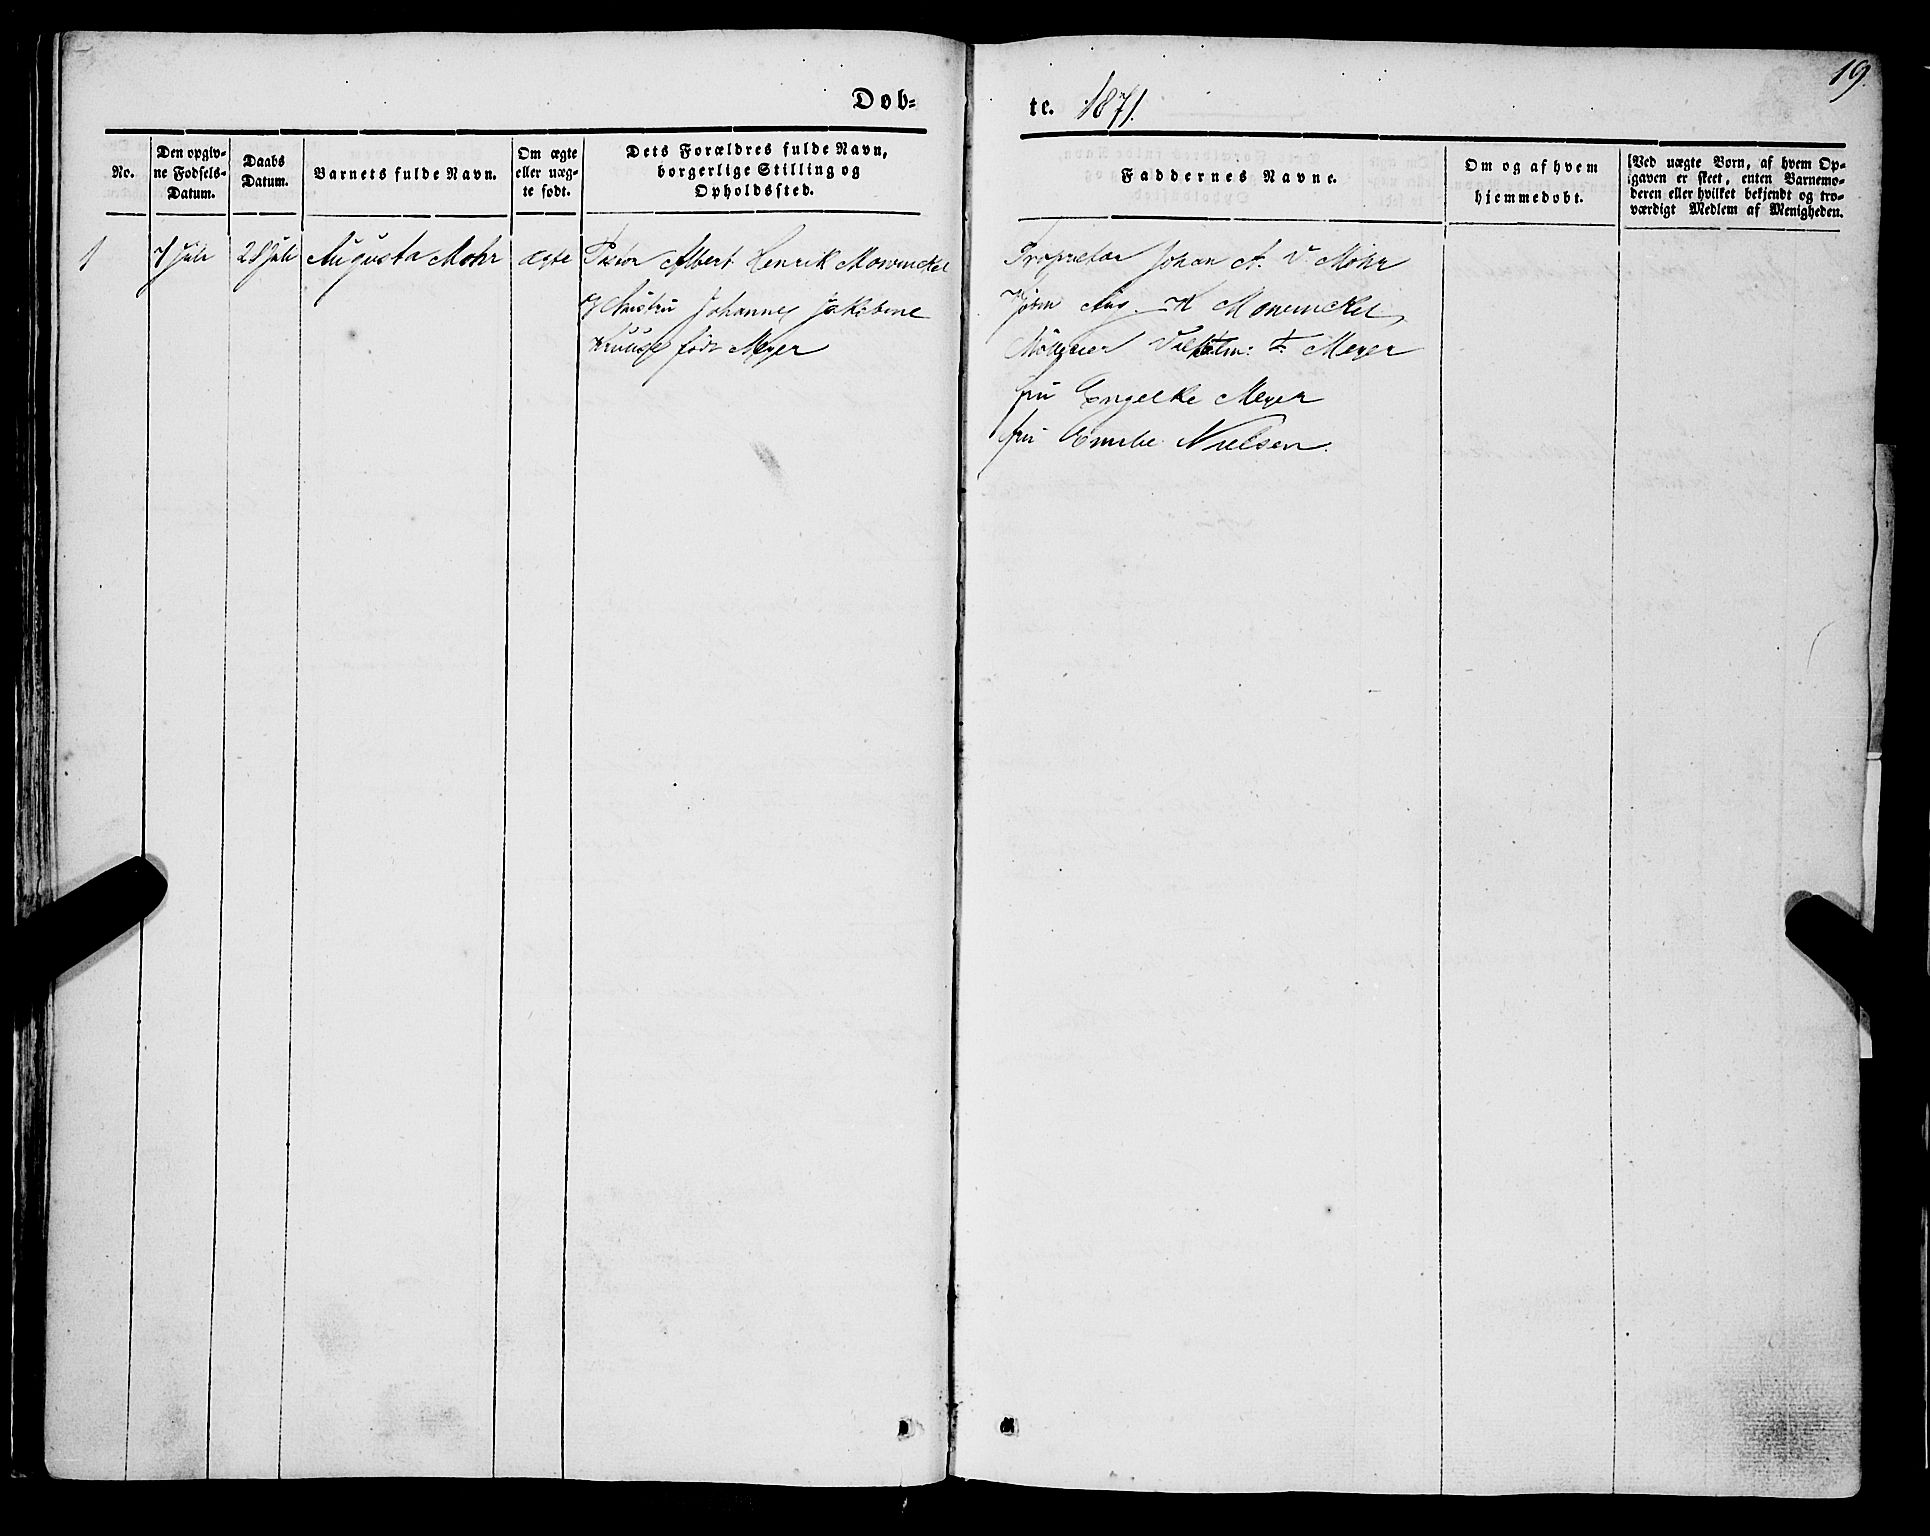 19.
Døb-
te. 1871.
No.
Den opgiv-
ne Fødsels-
Datum.
Daabs
Datum.
Barnets fulde Navn.
Om ægte
eller uæg-
te født.
Dets Forældres fulde Navn,
borgerlige Stilling og
Opholdssted.
Faddernes Navne.
Om og af hvem
hjemmedøbt.
Ved uægte Børn, af hvem Op-
gaven er skeet, enten Barnemo-
deren eller hvilket bekjendt og tro-
værdigt Medlem af Menigheden.
1
7 Juli
28 Juli
Augusta Mohr
ægte
Albert Henrik Mowinckel
og Hustru Johanne Jakobine
Kruuse født Meyer
Proprietær Johan A. V. Mohr
Kjøbm Aug. K Mowinckel,
Vilhelm: F. Meyer
fru Engelke Meyer
fru Emilie Nielsen.